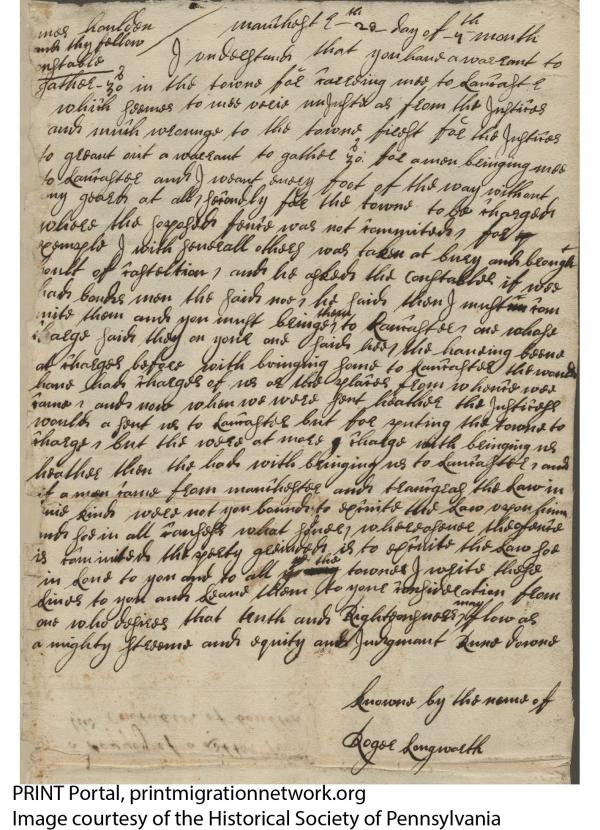 mes houlden manchestr ye 22th day of 4th month
and thy fellow
Constable I understand that you have a warrant to
gather 30 in the towne for carring mee to Lancastr
which seemes to mee verie unjuste as from the Justices
and much wronge to the towne first for the Justices
to greant out a warrant to gather 30 for a men bringing mee
to Lancaster and I weant every foot of the way without
my geard at all secondly for the towne to be charged
where the soposed fence was not comited for
exemaple I with severall others was taken at bury and brought
oout of and he asked the constables if wee
had bonds men the said noe he said then I must com
mite them and you must bringe them to Lancaster one whose
charge said they on your one said hee the haveing beene
at charges before with bringing some to Lancaster the would
have had charges of us at the places from whence wee
came and now when we were sent heather the Justices
would a sent us to Lancaster but for puting the towne to
charge but the were at more charge with bringing us
heather then the had with bringing us to Lancaster and
if a man came from manchester and transgras the Law in
kind were not you bound to the Law upon him
and soe in all whersoever the ofence
is comitted the party greived is to the Law soe
in Love to you and to all the townes I write these
Lines to you and Leave them to your consideration from
one who desires that truth and Rightousness may flow as
a mighty streeme and equity and Judgmant Rune downe
Knowne by the name of
Roger Longworth
PRINT Portal, printmigrationnetwork.org
Image courtesy of the Historical Society of Pennsylvania